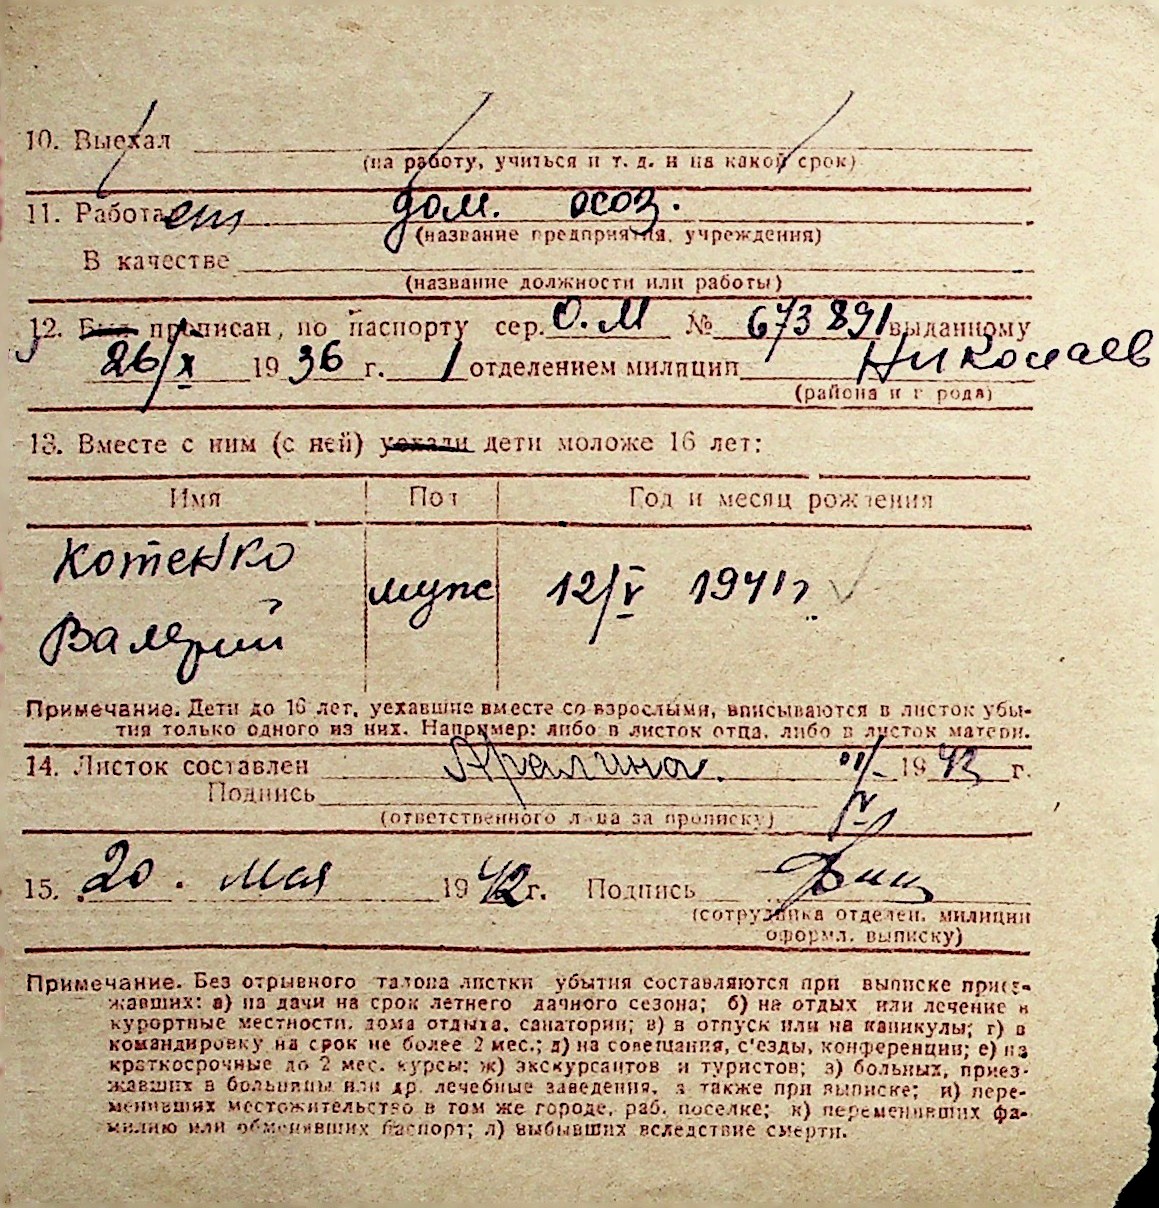 10. Выехал
(на работу, учиться и т. д. и на какой срок)
11. Работает дом. осоз.
(название предприятия, учреждения)
В качестве
(название должности или работы)
12. Был прописан, по паспорту сер. О.М № 673891 выданному
26/X 1936 г. 1 отделением милиции Николаев
(района и города)
13. Вместе с ним (с ней) уехали дети моложе 16 лет:
Имя Пол Год и месяц рождения
Котенко
муж 12/V 1941 г.
Валерий
Примечание. Дети до 16 лет, уехавшие вместе со взрослыми, вписываются в листок убы-
тия только одного из них. Например: либо в листок отца, либо в листок матери.
14. Листок составлен 1942 г.
Подпись V
(ответственного лица за прописку)
15. 20. мая 1942 г. Подпись
(сотрудника отделен. милиции
оформл. выписку)
Примечание. Без отрывного талона листки убытия составляются при выписке приез-
жавших: а) на дачи на срок летнего дачного сезона; б) на отдых или лечение в
курортные местности, дома отдыха, санатории; в) в отпуск или на каникулы; г) в
командировку на срок не более 2 мес.; д) на совещания, с'езды, конференции; е) на
краткосрочные до 2 мес. курсы; ж) экскурсантов и туристов; з) больных, приез-
жавших в больницы или др. лечебные заведения, а также при выписке; и) пере-
менивших местожительство в том же городе, раб. поселке; к) переменивших фа-
милию или обменявших паспорт; л) выбывших вследствие смерти.